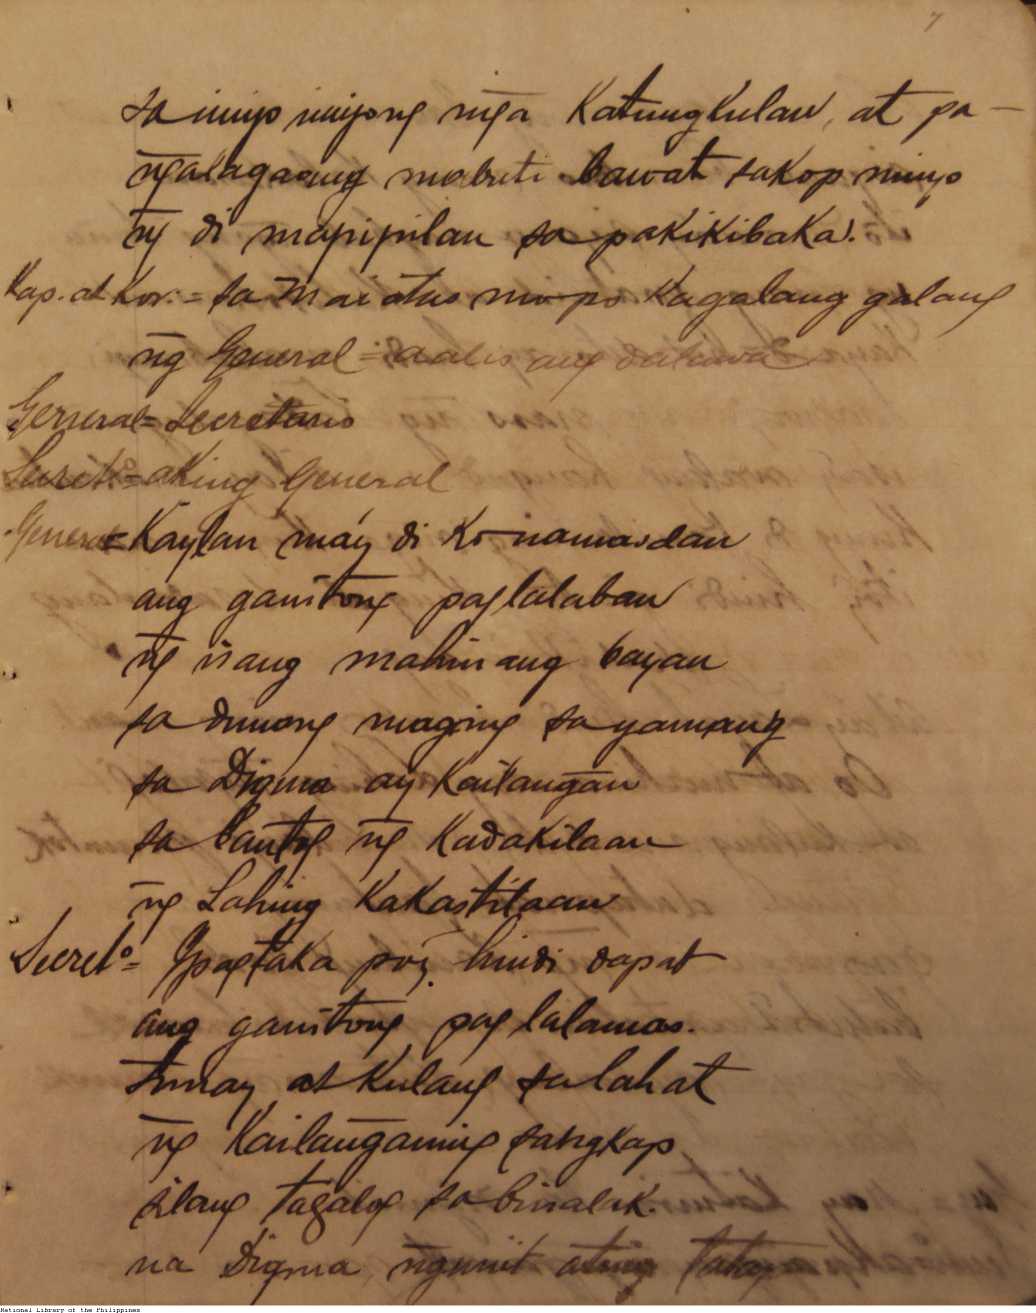 7
sa inyo inyong mga Katungkulan, at pa-
ngalagaang mabuti bawat sakop ninyo
ng di mapipilan sa pakikibaka.
Kap. at Kor. = Sa mai atas mo po Kagalang galang
ng General = aalis ang dalawa
General = Secretario
Secret.º = aking General
General = Kaylan máy di Ko namasdan
ang ganitong paglalaban
ng isang mahinang bayan
sa dunong maging sa yamang
sa Digma ay Kailangan
sa bantog ng Kadakilaan
ng Lahing Kakastilaan
Secretº = Ipagtaka pó, hindi dapat
ang ganitong pag lalamas.
Tunay at Kulang sa lahat
ng Kailanganing sangkap
silang tagalog sa binalak.
na Digma, nguni't ating
National Library of the Philippines